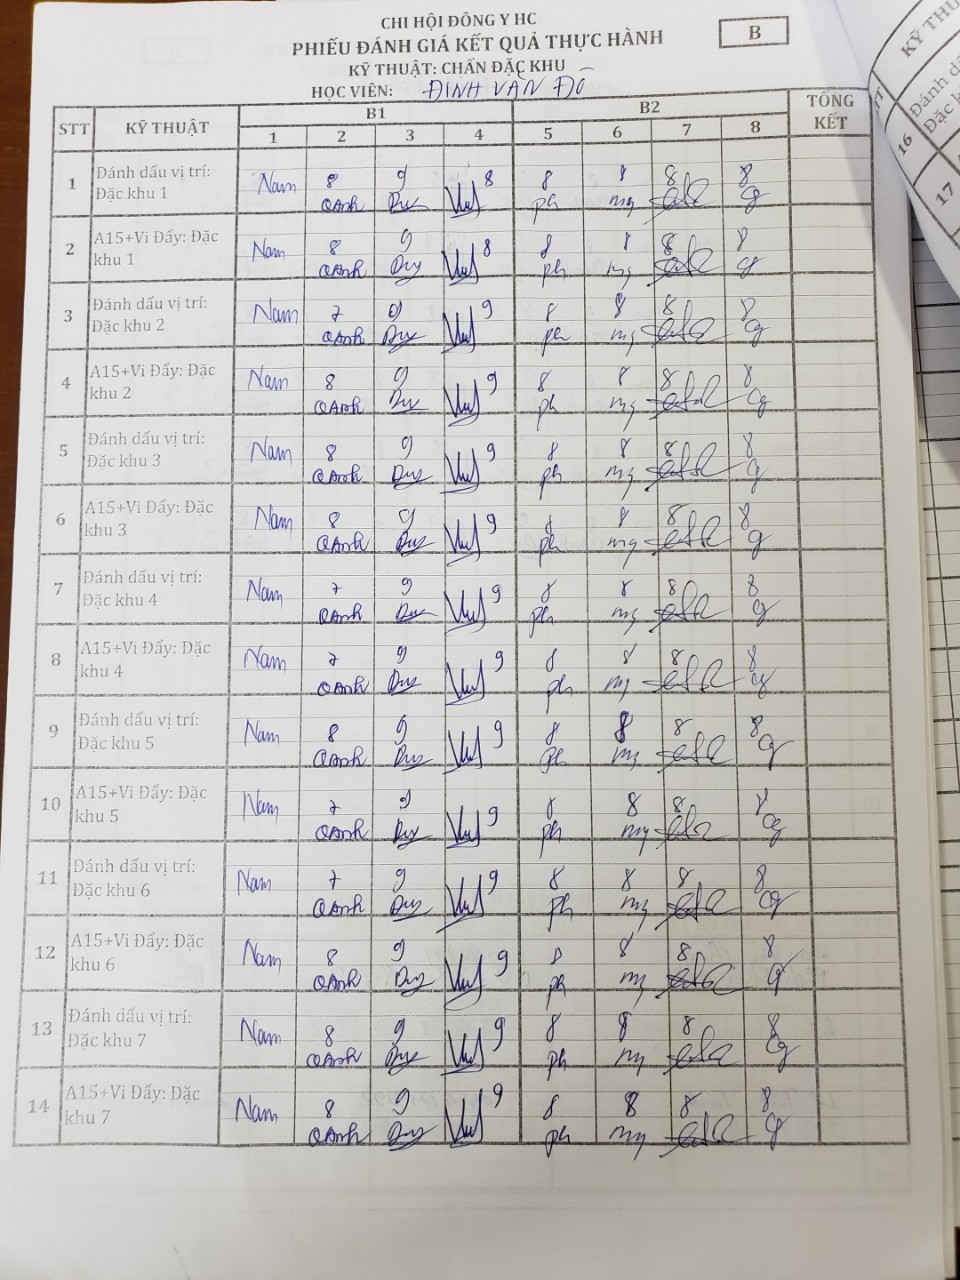 CHI HỘI ĐÔNG Y HC
PHIẾU ĐÁNH GIÁ KẾT QUẢ THỰC HÀNH
B
KỸ THUẬT: CHẨN ĐẶC KHU
HỌC VIÊN: ĐINH VĂN ĐÔ
STT KỸ THUẬT B1 B2 TỔNG KẾT
1 2 3 4 5 6 7 8
1 Đánh dấu vị trí: Đặc khu 1 Nam 8 9 8 8 8 8 8
QAnh Duy ph mg
2 A15+Vi Đẩy: Đặc khu 1 Nam 8 9 8 8 8 8 8
QAnh Duy ph mg
3 Đánh dấu vị trí: Đặc khu 2 Nam 7 9 9 8 8 8 8
QAnh Duy ph mg
4 A15+Vi Đẩy: Đặc khu 2 Nam 8 9 9 8 8 8 8
QAnh Duy ph mg
5 Đánh dấu vị trí: Đặc khu 3 Nam 8 9 9 8 8 8 8
QAnh Duy ph mg
6 A15+Vi Đẩy: Đặc khu 3 Nam 8 9 9 8 8 8 8
QAnh Duy ph mg
7 Đánh dấu vị trí: Đặc khu 4 Nam 7 9 9 8 8 8 8
QAnh Duy ph mg
8 A15+Vi Đẩy: Đặc khu 4 Nam 7 9 9 8 8 8 8
QAnh Duy ph mg
9 Đánh dấu vị trí: Đặc khu 5 Nam 8 9 9 8 8 8 8
QAnh Duy ph mg
10 A15+Vi Đẩy: Đặc khu 5 Nam 7 9 9 8 8 8 8
QAnh Duy ph mg
11 Đánh dấu vị trí: Đặc khu 6 Nam 7 9 9 8 8 8 8
QAnh Duy ph mg
12 A15+Vi Đẩy: Đặc khu 6 Nam 8 9 9 8 8 8 8
QAnh Duy ph mg
13 Đánh dấu vị trí: Đặc khu 7 Nam 8 9 9 8 8 8 8
QAnh Duy ph mg
14 A15+Vi Đẩy: Đặc khu 7 Nam 8 9 9 8 8 8 8
QAnh Duy ph mg
KỸ THU
16 Đánh dấ
Đặc k
17